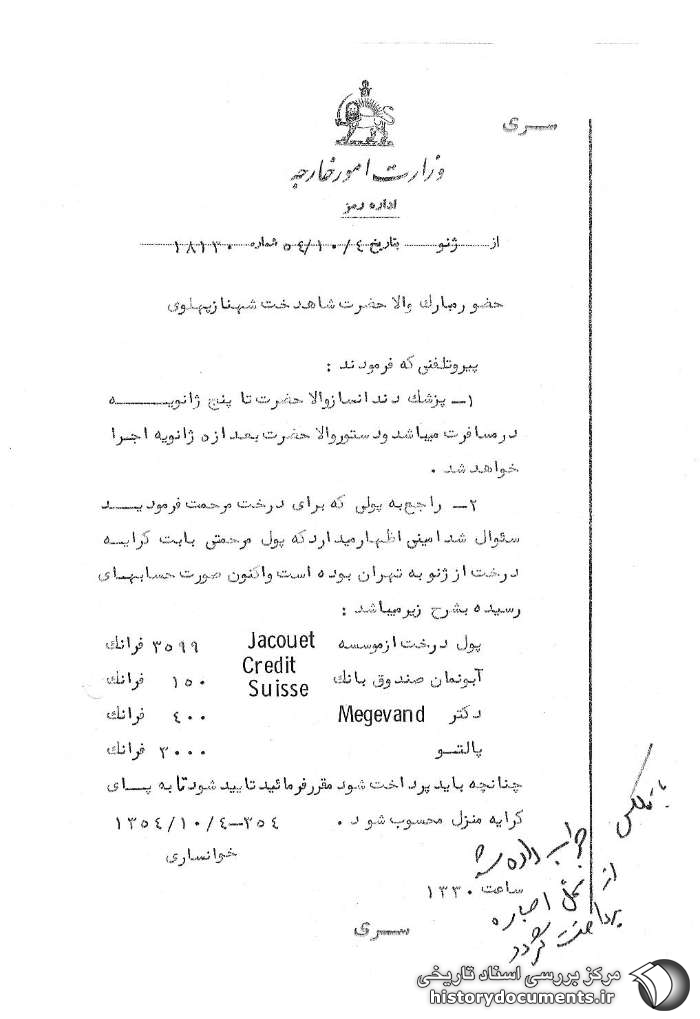 سری
وزارت امور خارجه
اداره رمز
از ژنو بتاریخ ۵۴/۱۰/۴ شماره ۱۸۱۳۰
حضور مبارك والا حضرت شاهدخت شهناز پهلوی
پیرو تلفنی که فرمودند :
۱ــ پزشك دندانساز والا حضرت تا پنج ژانویه
در مسافرت میباشد و دستور والا حضرت بعد از ۵ ژانویه اجرا
خواهد شد .
۲ــ راجع به پولی که برای درخت مرحمت فرمودید
سئوال شد امینی اظهار میدارد که پول مرحمتی بابت کرایه
درخت از ژنو به تهران بوده است واکنون صورت حسابهای
رسیده بشرح زیر میباشد :
پول درخت از موسسه Jacouet ۳۵۹۹ فرانك
آبونمان صندوق بانك Credit Suisse ۱۵۰ فرانك
دکتر Megevand ۴۰۰ فرانك
پالتو ۳۰۰۰ فرانك
چنانچه باید پرداخت شود مقرر فرمائید تایید شود تا به پای
کرایه منزل محسوب شود . ۳۵۴ــ۱۳۵۴/۱۰/۴
خوانساری
ساعت ۱۳۳۰
با تلکس
جواب داده شد
از محل اجاره
پرداخت گردد
سری
مرکز بررسی اسناد تاریخی
historydocuments.ir